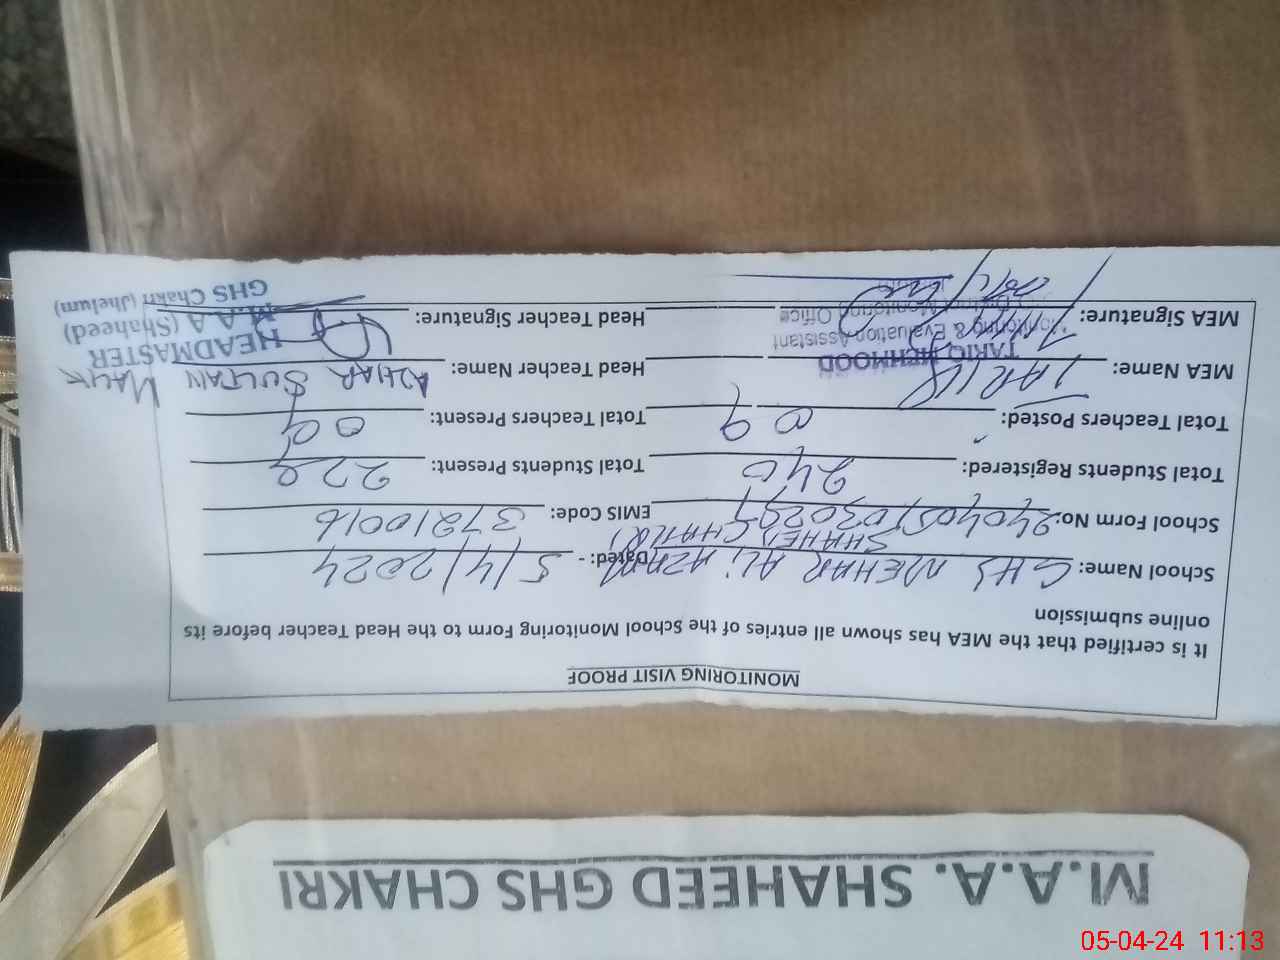 M.A.A. SHAHEED GHS CHAKRI
MONITORING VISIT PROOF
It is certified that the MEA has shown all entries of the School Monitoring Form to the Head Teacher before its
online submission
School Name: GHS MEHAR ALI AZAM Dated: - 5/4/2024
SHAHEED CHAKRI
School Form No: EMIS Code: 37210016
Total Students Registered: 240 Total Students Present: 229
Total Teachers Posted: 09 Total Teachers Present: 09
MEA Name: TARIQ Head Teacher Name: AZHAR SULTAN MALIK
TARIQ MEHMOOD
Monitoring & Evaluation Assistant
District Monitoring Office
MEA Signature: Head Teacher Signature:
HEADMASTER
M.A.A (Shaheed)
GHS Chakri (Jhelum)
05-04-24 11:13